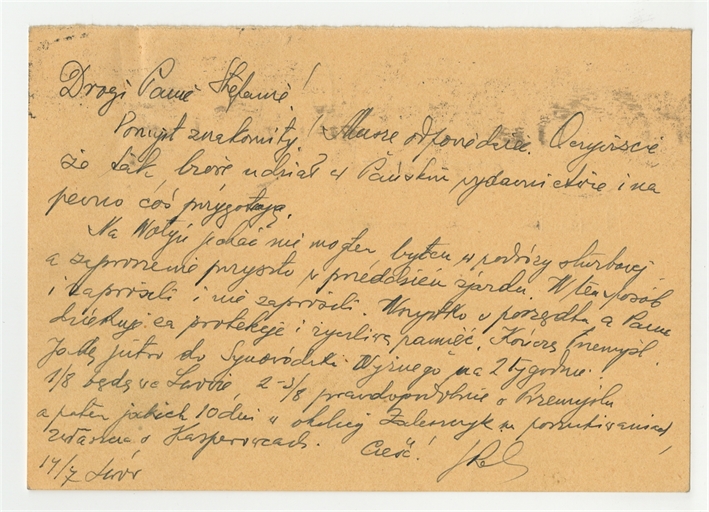 Drogi Panie Stefanie!
Pomysł znakomity! Muszę odpowiedzieć. Oczywiście
że tak, biorę udział w Pańskim wydawnictwie i na
pewno coś przygotuję.
Na Wołyń jechać nie mogłem byłem w podróży służbowej
a zaproszenie przyszło w przeddzień zjazdu. W ten sposób
i zaprosili i nie zaprosili. Wszystko w porządku a Panu
dziękuję za protekcję i życzliwą pamięć. Kończę Przemyśl.
Jadę jutro do Synowódzka Wyżnego na 2 tygodnie.
1/8 będę we Lwowie, 2-3/8 prawdopodobnie w Przemyślu
a potem jakich 10 dni w okolicy Zaleszczyk na poszukiwaniach,
w Kasperowcach. Cześć!
14/7 Lwów